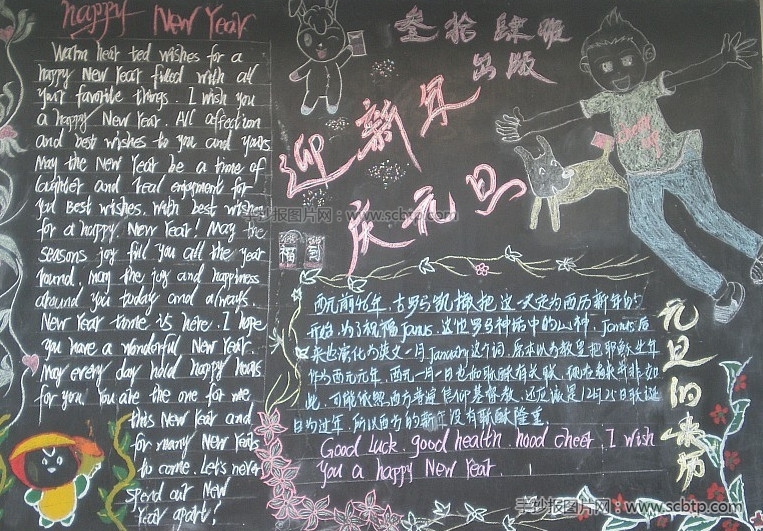 happy New Year
Warm heart ted wishes for a
happy New Year filled with all
your favorite things. I wish you
a happy New Year. All affection
and best wishes to you and yours
May the New Year be a time of
laughter and real enjoyment for
you Best wishes. with best wishes
for a happy New Year! May the
seasons joy fill you all the year
round. may the joy and happiness
around you today and always.
New Year time is here. I hope
you have a wonderful New Year.
May every day hold happy hours
for you. You are the one for me
this New Year and
for many New Years
to come. Let's never
spend our New
Year apart!
叁拾肆班
出版
迎新年
庆元旦
手抄报图片网：www.scbtp.com
福
元旦的来历
西元前46年，古罗马凯撒把这一天定为西历新年的
开始，为了祝福Janus，这位罗马神话中的
Janus后
来也演化为英文一月January这个词，
教是把耶稣生年
作为西元元年，西元一月一日也和耶稣有关联，
并非如
此，可能依照西方普遍信仰基督教，还应该是12月25日耶诞
日为过年，所以西方的新年没有耶稣隆重
Good luck, good health, hood cheer. I wish
you a happy New Year.
手抄报图片网：www.scbtp.com